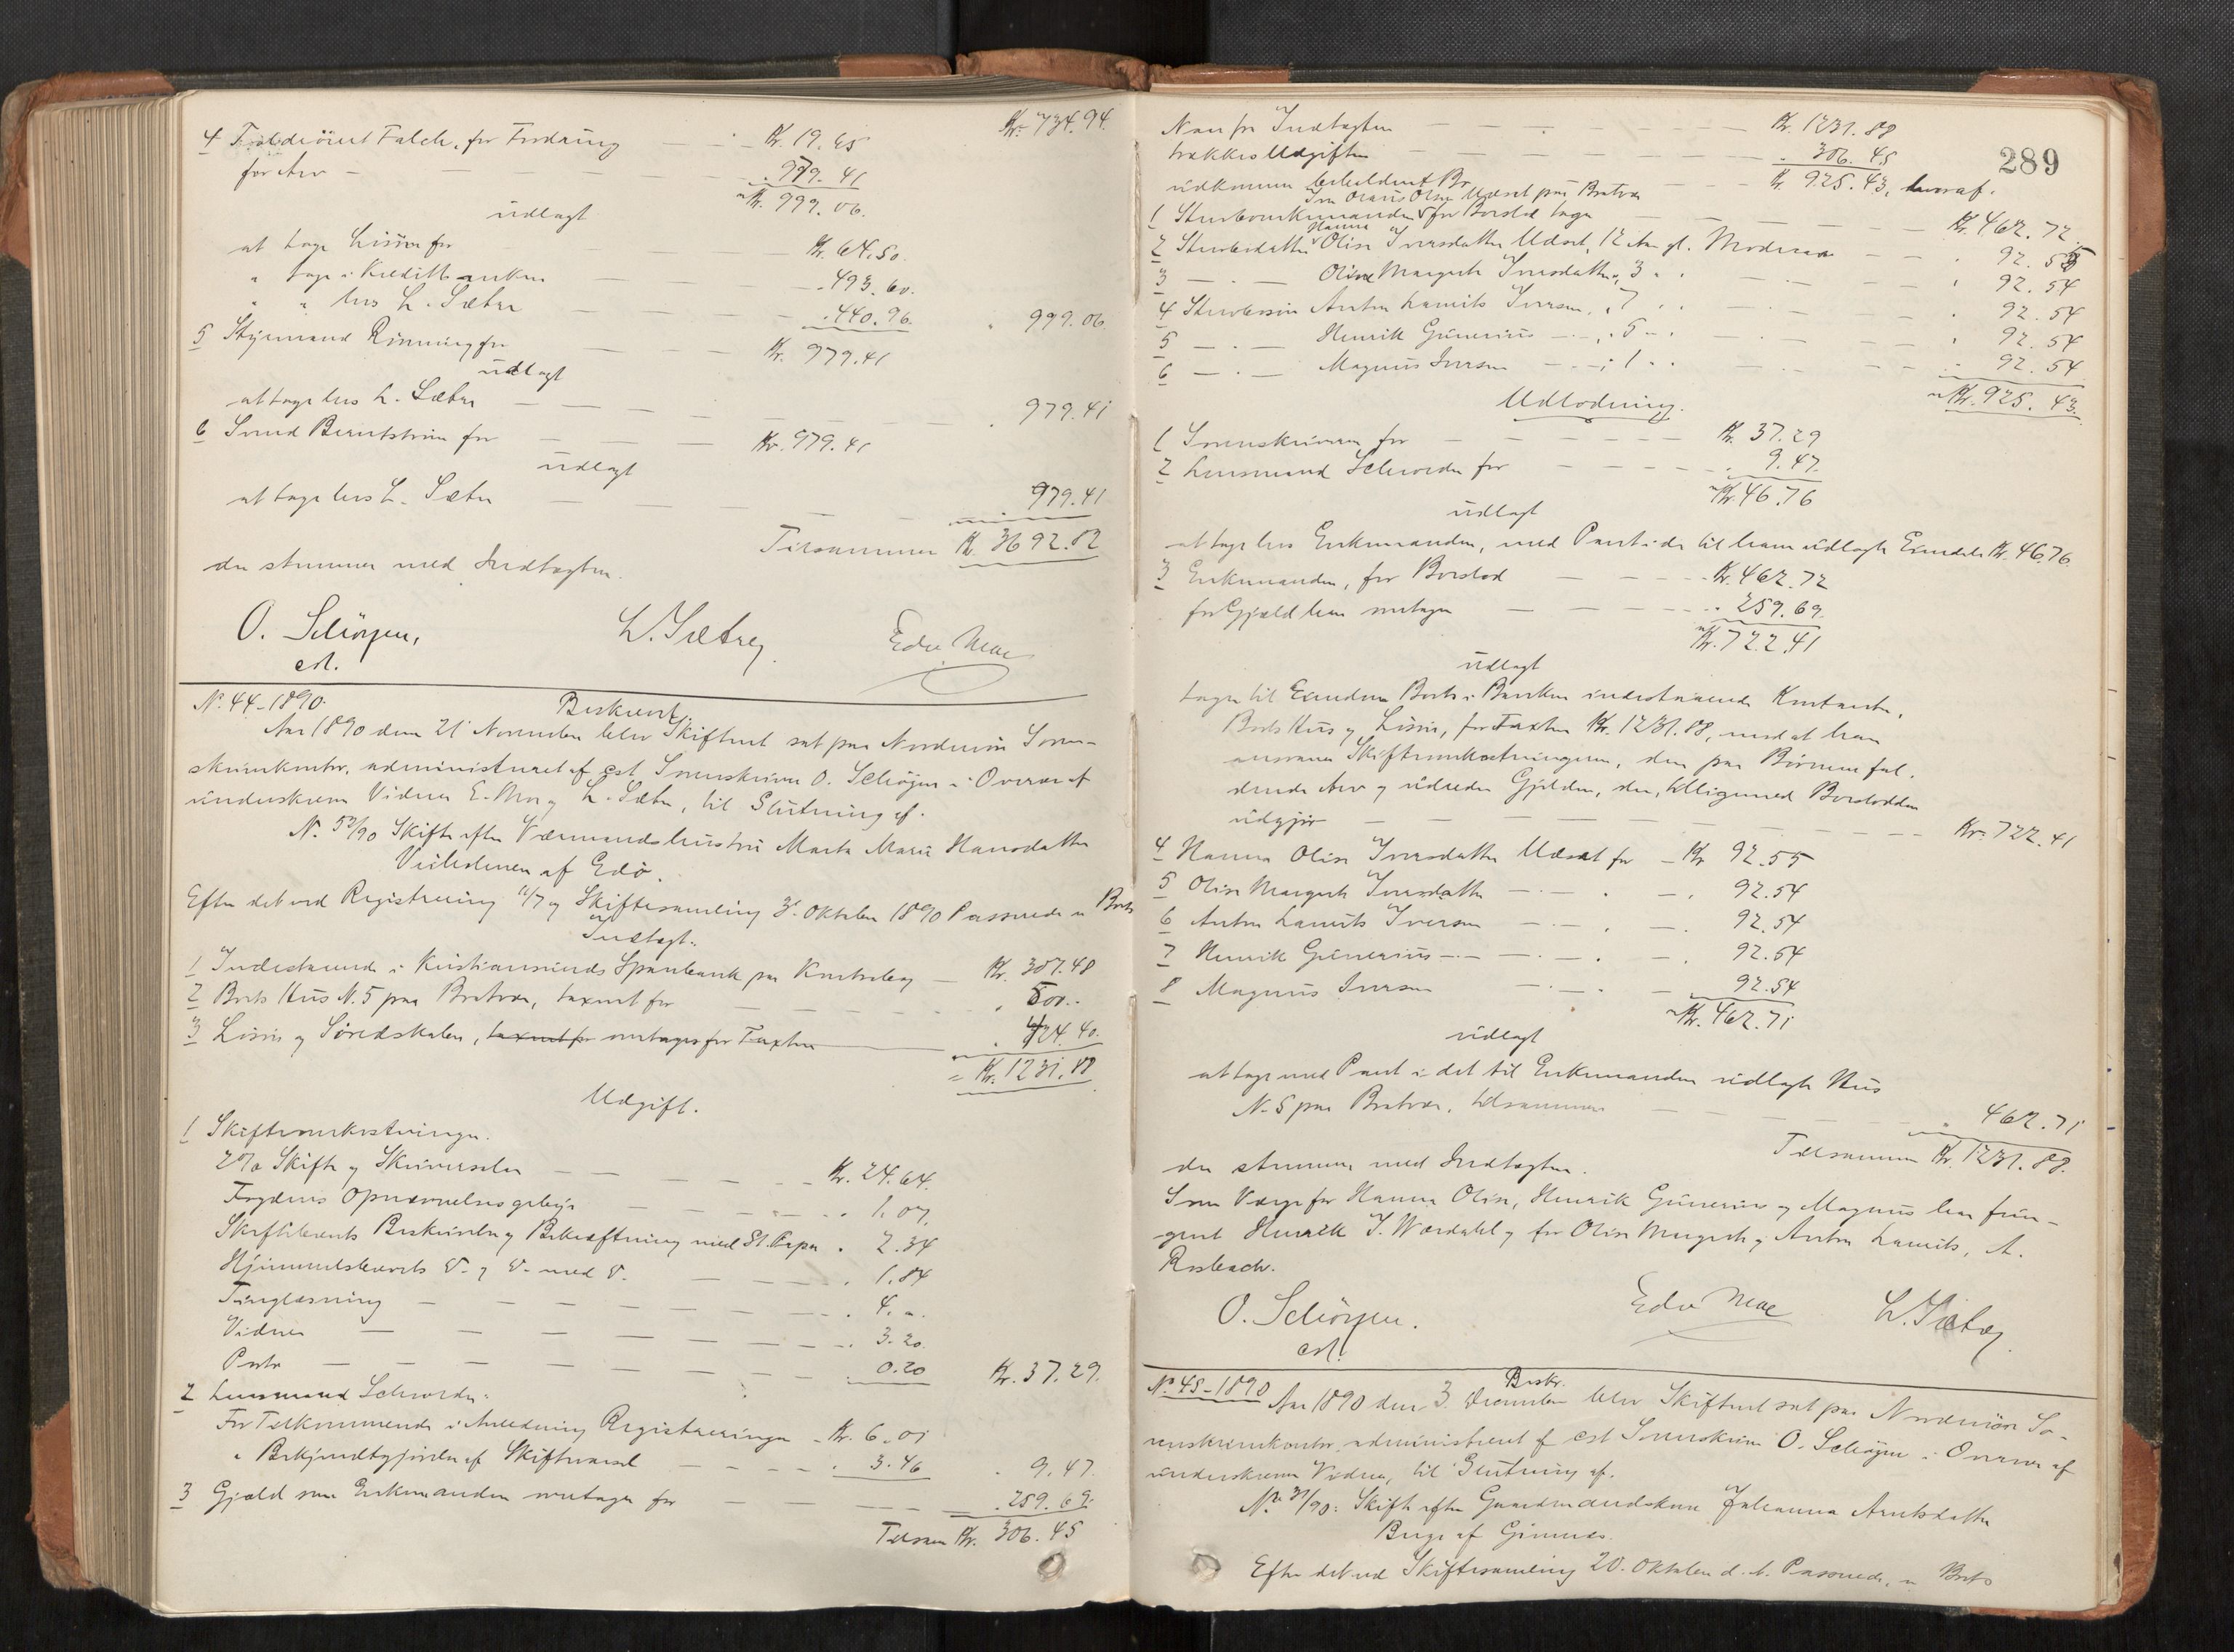 Kr. 734.94.
4 Falch, for Fordring — Kr. 19.65
for Arv — " 979.41
Kr. 999.06.
udlagt
at tage Løsøre for — Kr. 64.50.
" tage i Kreditbanken — " 493.60.
" " hos L. Sæter — " 440.96. " 999.06.
5 Styrmand Rinning for — Kr. 979.41
udlagt
at tage hos L. Sæter — " 979.41
6 Svend Berntstrøm for — Kr. 979.41
udlagt
at tage hos L. Sæter — 979.41
Tilsammen Kr. 3692.82
der stemmer med Indtægten.
O. Schöyen, L. Sætrej Edv Moe
cst.
N. 44-1890. Beskrevet.
Aar 1890 den 21 November blev Skifteret sat paa Nordmøre Soren-
skriverkontor, administreret af cst Sorenskriver O. Schøyen i Overvær af
underskrevne Vidner E. Moe og L. Sæter, til Slutning af.
N. 52/90 Skifte efter Værmandshustru Marta Marie Hansdatter
af Edø.
Efter det ved Registrering 11/7 og Skiftesamling 3. Oktober 1890 Passerede er Boets
Indtægt:
1 Indestaaende i Kristianssunds Sparebank paa Kontrabog — Kr. 307.48
2 Boets Hus N. 5 paa Bratvær, taxeret for — " 500.-
3 Løsøre og Søredskaber, taxeret for modtages for Taxten — " 424.40.
= Kr. 1231.88
Udgift.
1 Skifteomkostninger.
2% Skifte og Skriversalær — Kr. 24.64.
Fogdens Opnævnelsesgebyr — " 1.07.
Skiftebrevets Beskrivelse og Bekræftning med St. Papir " 2.34
Hjemmelsbrevets D. og D. med D. — " 1.84
Tinglæsning — " 4. "
Vidner — " 3.20.
Porto — 0.20 Kr. 37.29.
2 Lensmand Schevorden:
For Tilkommende i Anledning Registreringen — Kr. 6.01
" Bekjendtgjørelse af Skiftevarsel — " 3.46 " 9.47.
3 Gjæld som Enkemanden modtager for — " 259.69.
Tilsam Kr. 306.45
289
Naar fra Indtægten — Kr. 1231.88
trækkes Udgiften — " 306.45
udkommer beholdent Bo — Kr. 925.43, hvoraf.
Iver Olaus Olsen Udset paa Bratvær
1 Sterbosenkemanden for Boslod tager — Kr. 462.72
Hanna
2 Sterbodatter Olise Iversdatter Udset, 12 Aar gl. Modersarv — " 92.55
3 — " — Olise Margrete Iversdatter, 3 " " — " 92.54
4 Sterbossøn Anton Laurits Iversen, " 7 " " — " 92.54
5 — " — Henrik Gunerius — " — , " 5 " " — " 92.54
6 — " — Magnus Iversen — " — , " 1 " " — " 92.54
Kr. 925.43.
Udlodning.
1 Sorenskriveren for — Kr. 37.29
2 Lensmand Schevorden for — " 9.47.
Kr. 46.76
udlagt
at tage hos Enkemanden, med Pant i de til ham udlagte Eiendele Kr. 46.76.
3 Enkemanden, for Boslod — Kr. 462.72
for Gjæld han modtager — " 259.69.
Kr. 722.41
udlagt
tager til Eiendom Boets i Banken indestaaende Kontanter,
Boets Hus og Løsøre, for Taxten Kr. 1231.88, mod at han
ansvarer Skifteomkostningerne, den paa Børnene fal-
dende Arv og udreder Gjælden, der, tilligemed Boslodden
udgjør — Kr. 722.41
4 Hanna Olise Iversdatter Udset for — Kr 92.55
5 Olise Margrete Iversdatter — " — " — " 92.54
6 Anton Laurits Iversen — " — " — " 92.54
7 Henrik Gunerius — " — " — " — " 92.54
8 Magnus Iversen — " — " — 92.54
Kr. 462.71
udlagt
at tage med Pant i det til Enkemanden udlagte Hus
N. 5 paa Bratvær, tilsammen — " 462.71
Tilsammen Kr. 1231.88.
der stemmer med Indtægten.
Som Værge for Hanna Olise, Henrik Gunerius og Magnus har fun-
geret Henrik I. Wærdahl og for Olise Margrete og Anton Laurits, A.
Rosbach.
O. Schöyen. Edv Moe L. Sætrej
cst.
N. 45-1890 Beskr.
Aar 1890 den 3. December blev Skifteret sat paa Nordmøre So-
renskriverkontor, administreret af cst Sorenskriver O. Schøyen i Overvær af
underskrevne Vidner, til Slutning af.
No 31/90: Skifte efter Gaardmandskone Julianna Arntsdatter
af
Efter det ved Skiftesamling 20. Oktober d. A. Passerede, er Boets